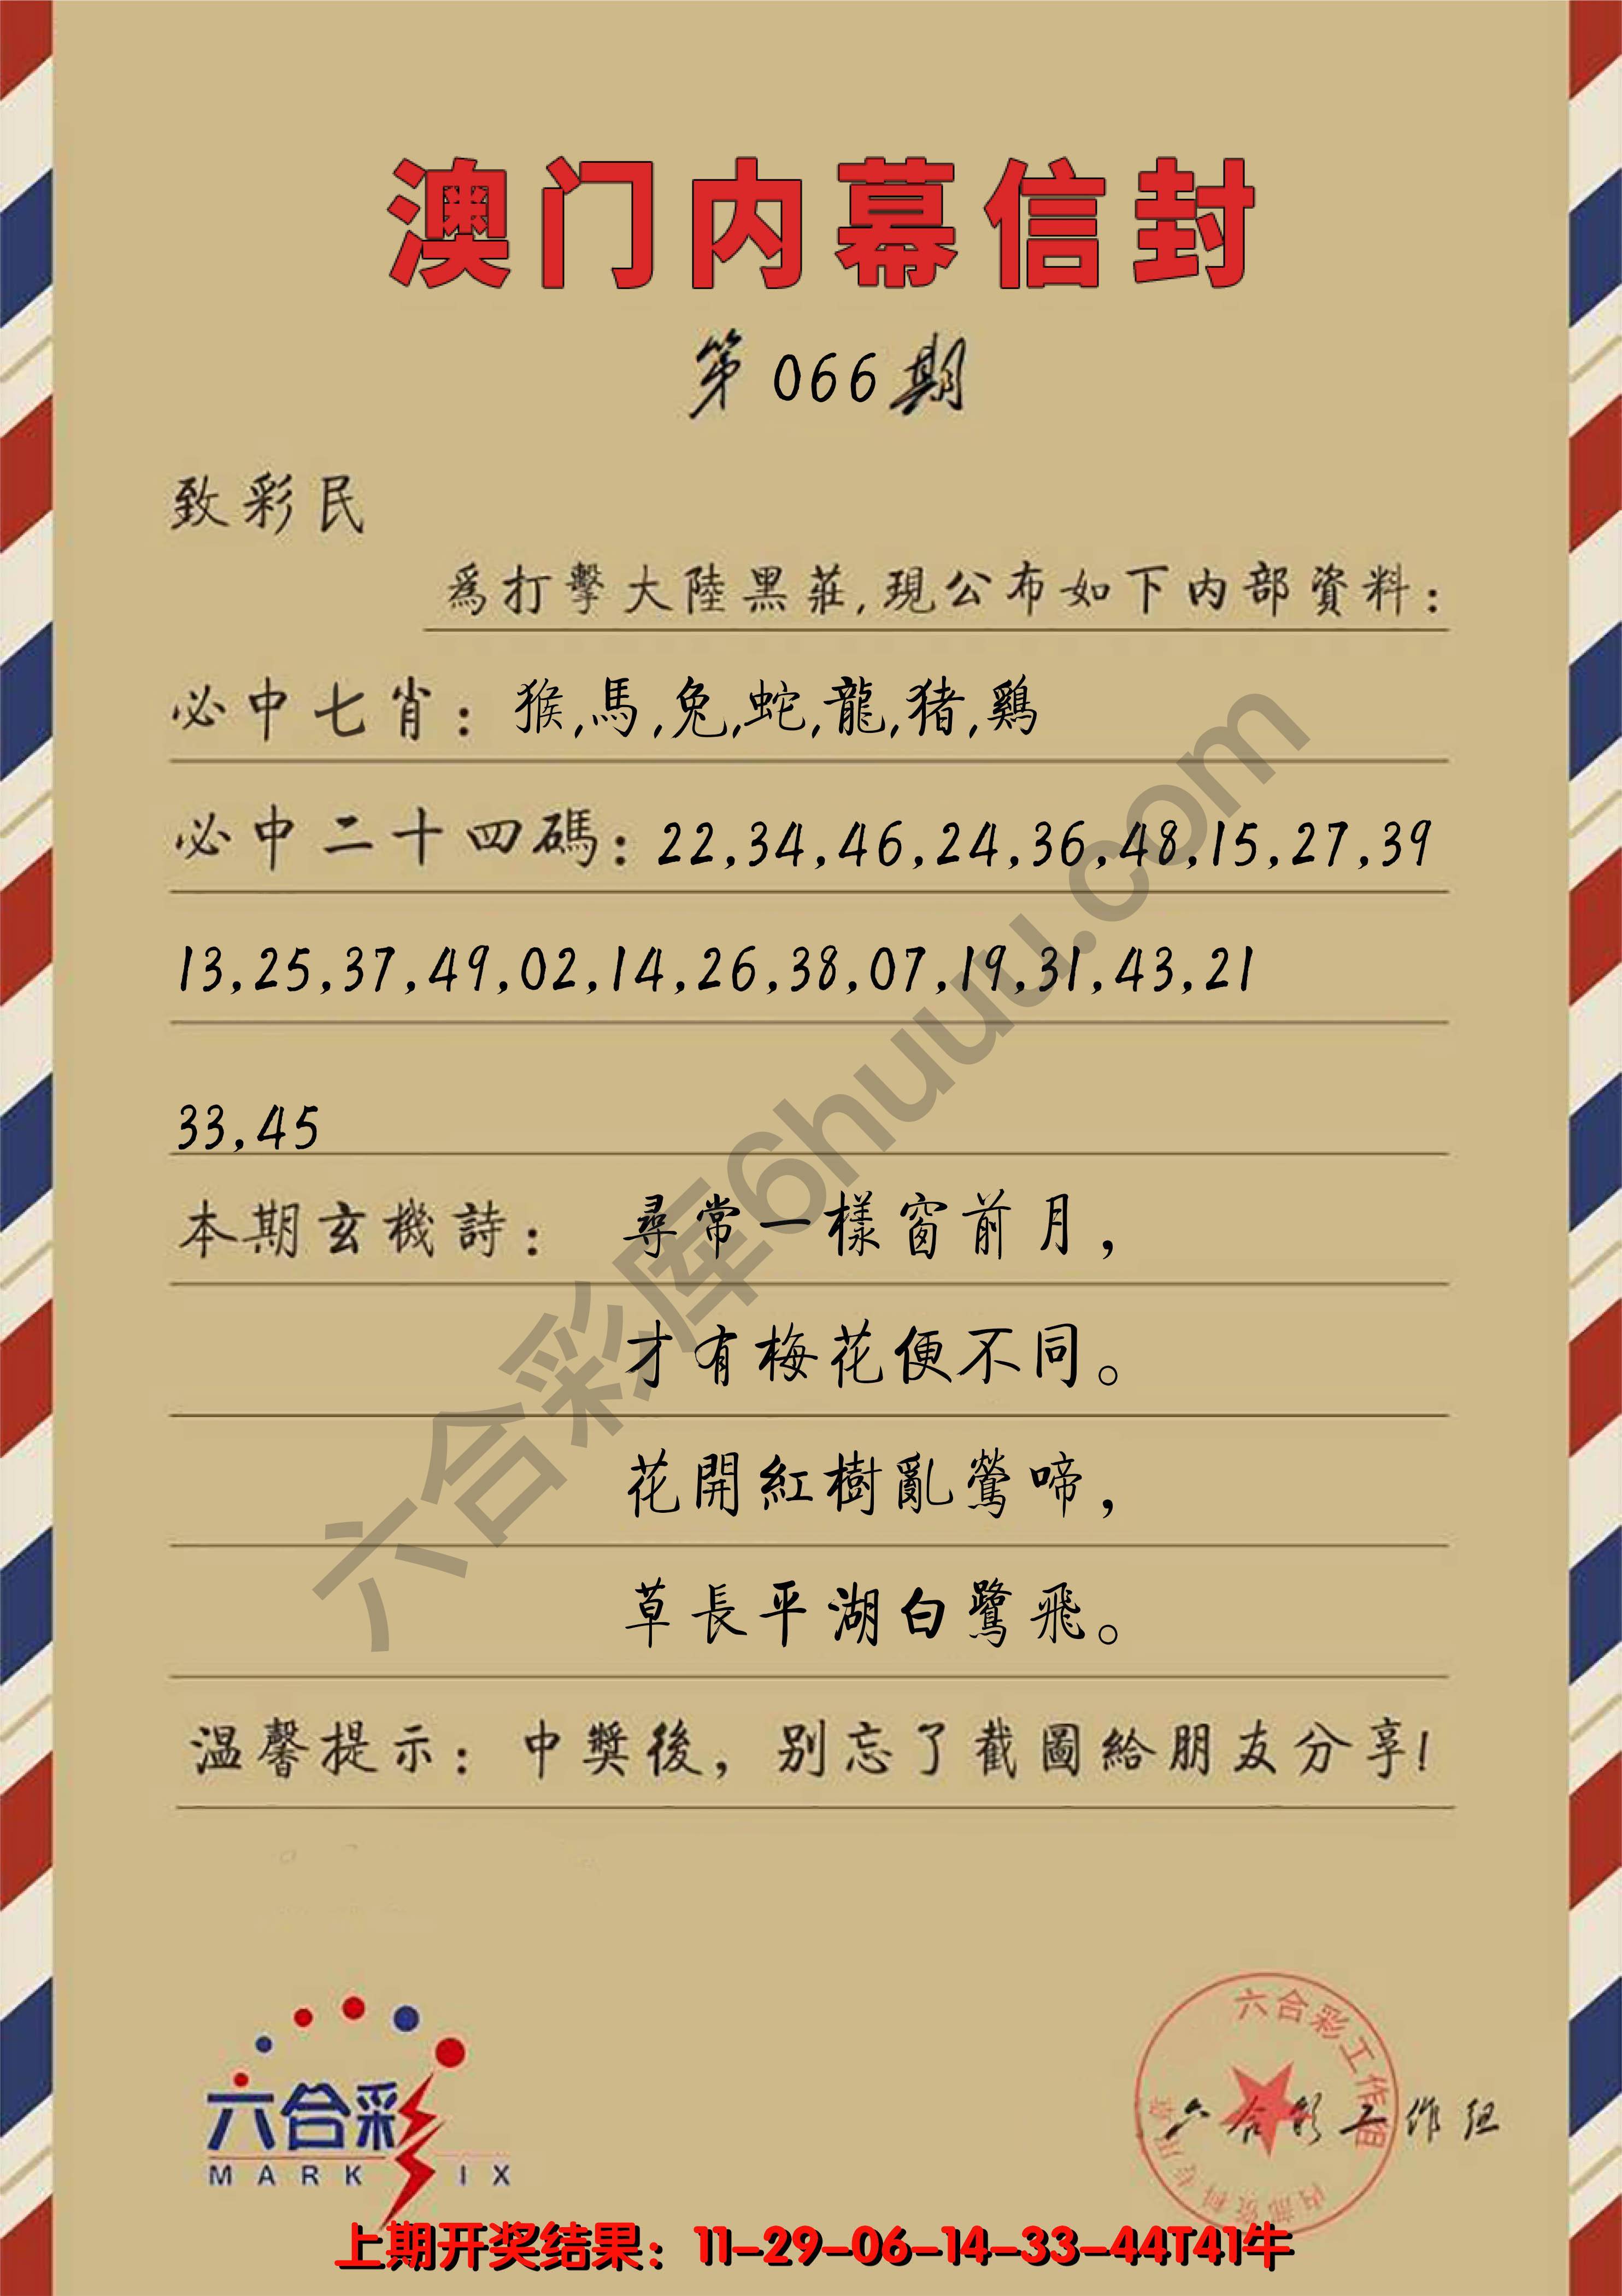 澳门内幕信封
第066期
致彩民
爲打擊大陸黑莊,現公布如下内部資料:
必中七肖: 猴,馬,兔,蛇,龍,猪,鷄
必中二十四碼: 22,34,46,24,36,48,15,27,39
13,25,37,49,02,14,26,38,07,19,31,43,21
33,45
本期玄機詩: 尋常一樣窗前月,
才有梅花便不同。
花開紅樹亂鶯啼,
草長平湖白鷺飛。
温馨提示: 中獎後, 别忘了截圖給朋友分享!
六合彩库6huuu.com
六合彩
MARK IX
六合彩工作组
内部资料专用章
六合彩工作组
上期开奖结果: 11-29-06-14-33-44T41牛